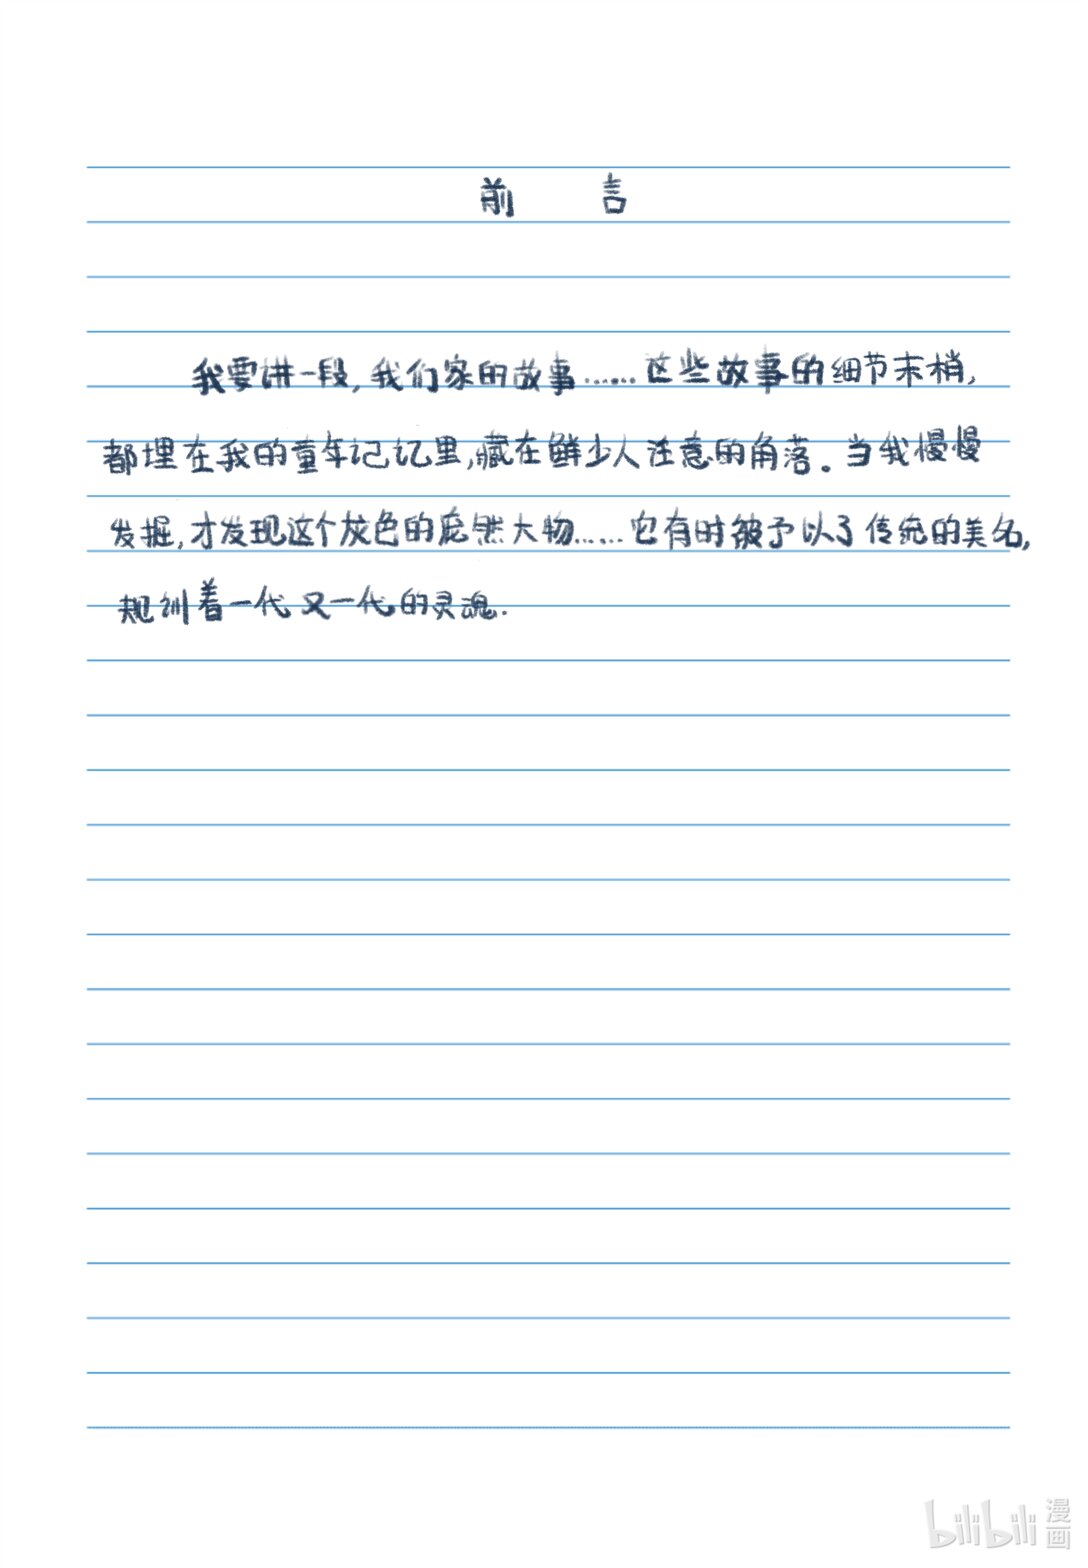 前 言
我要讲一段,我们家的故事……这些故事的细节末梢,
都埋在我的童年记忆里,藏在鲜少人注意的角落。当我慢慢
发掘,才发现这个灰色的庞然大物……它有时被予以了传统的美名,
规训着一代又一代的灵魂.
bilibili 漫画